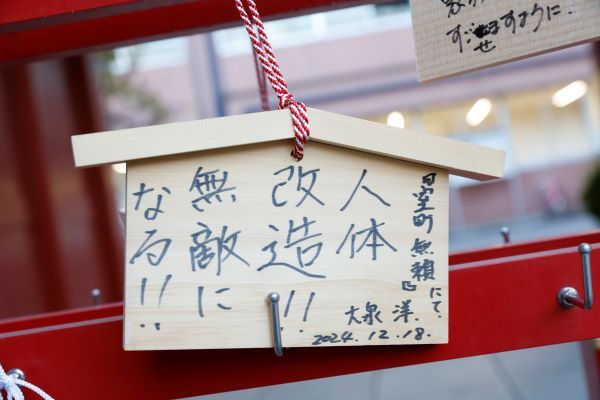 『室町無頼』にて.
人体
改造!!
無敵に
なる!!
大泉 洋.
2024.12.18.
すごせますように.